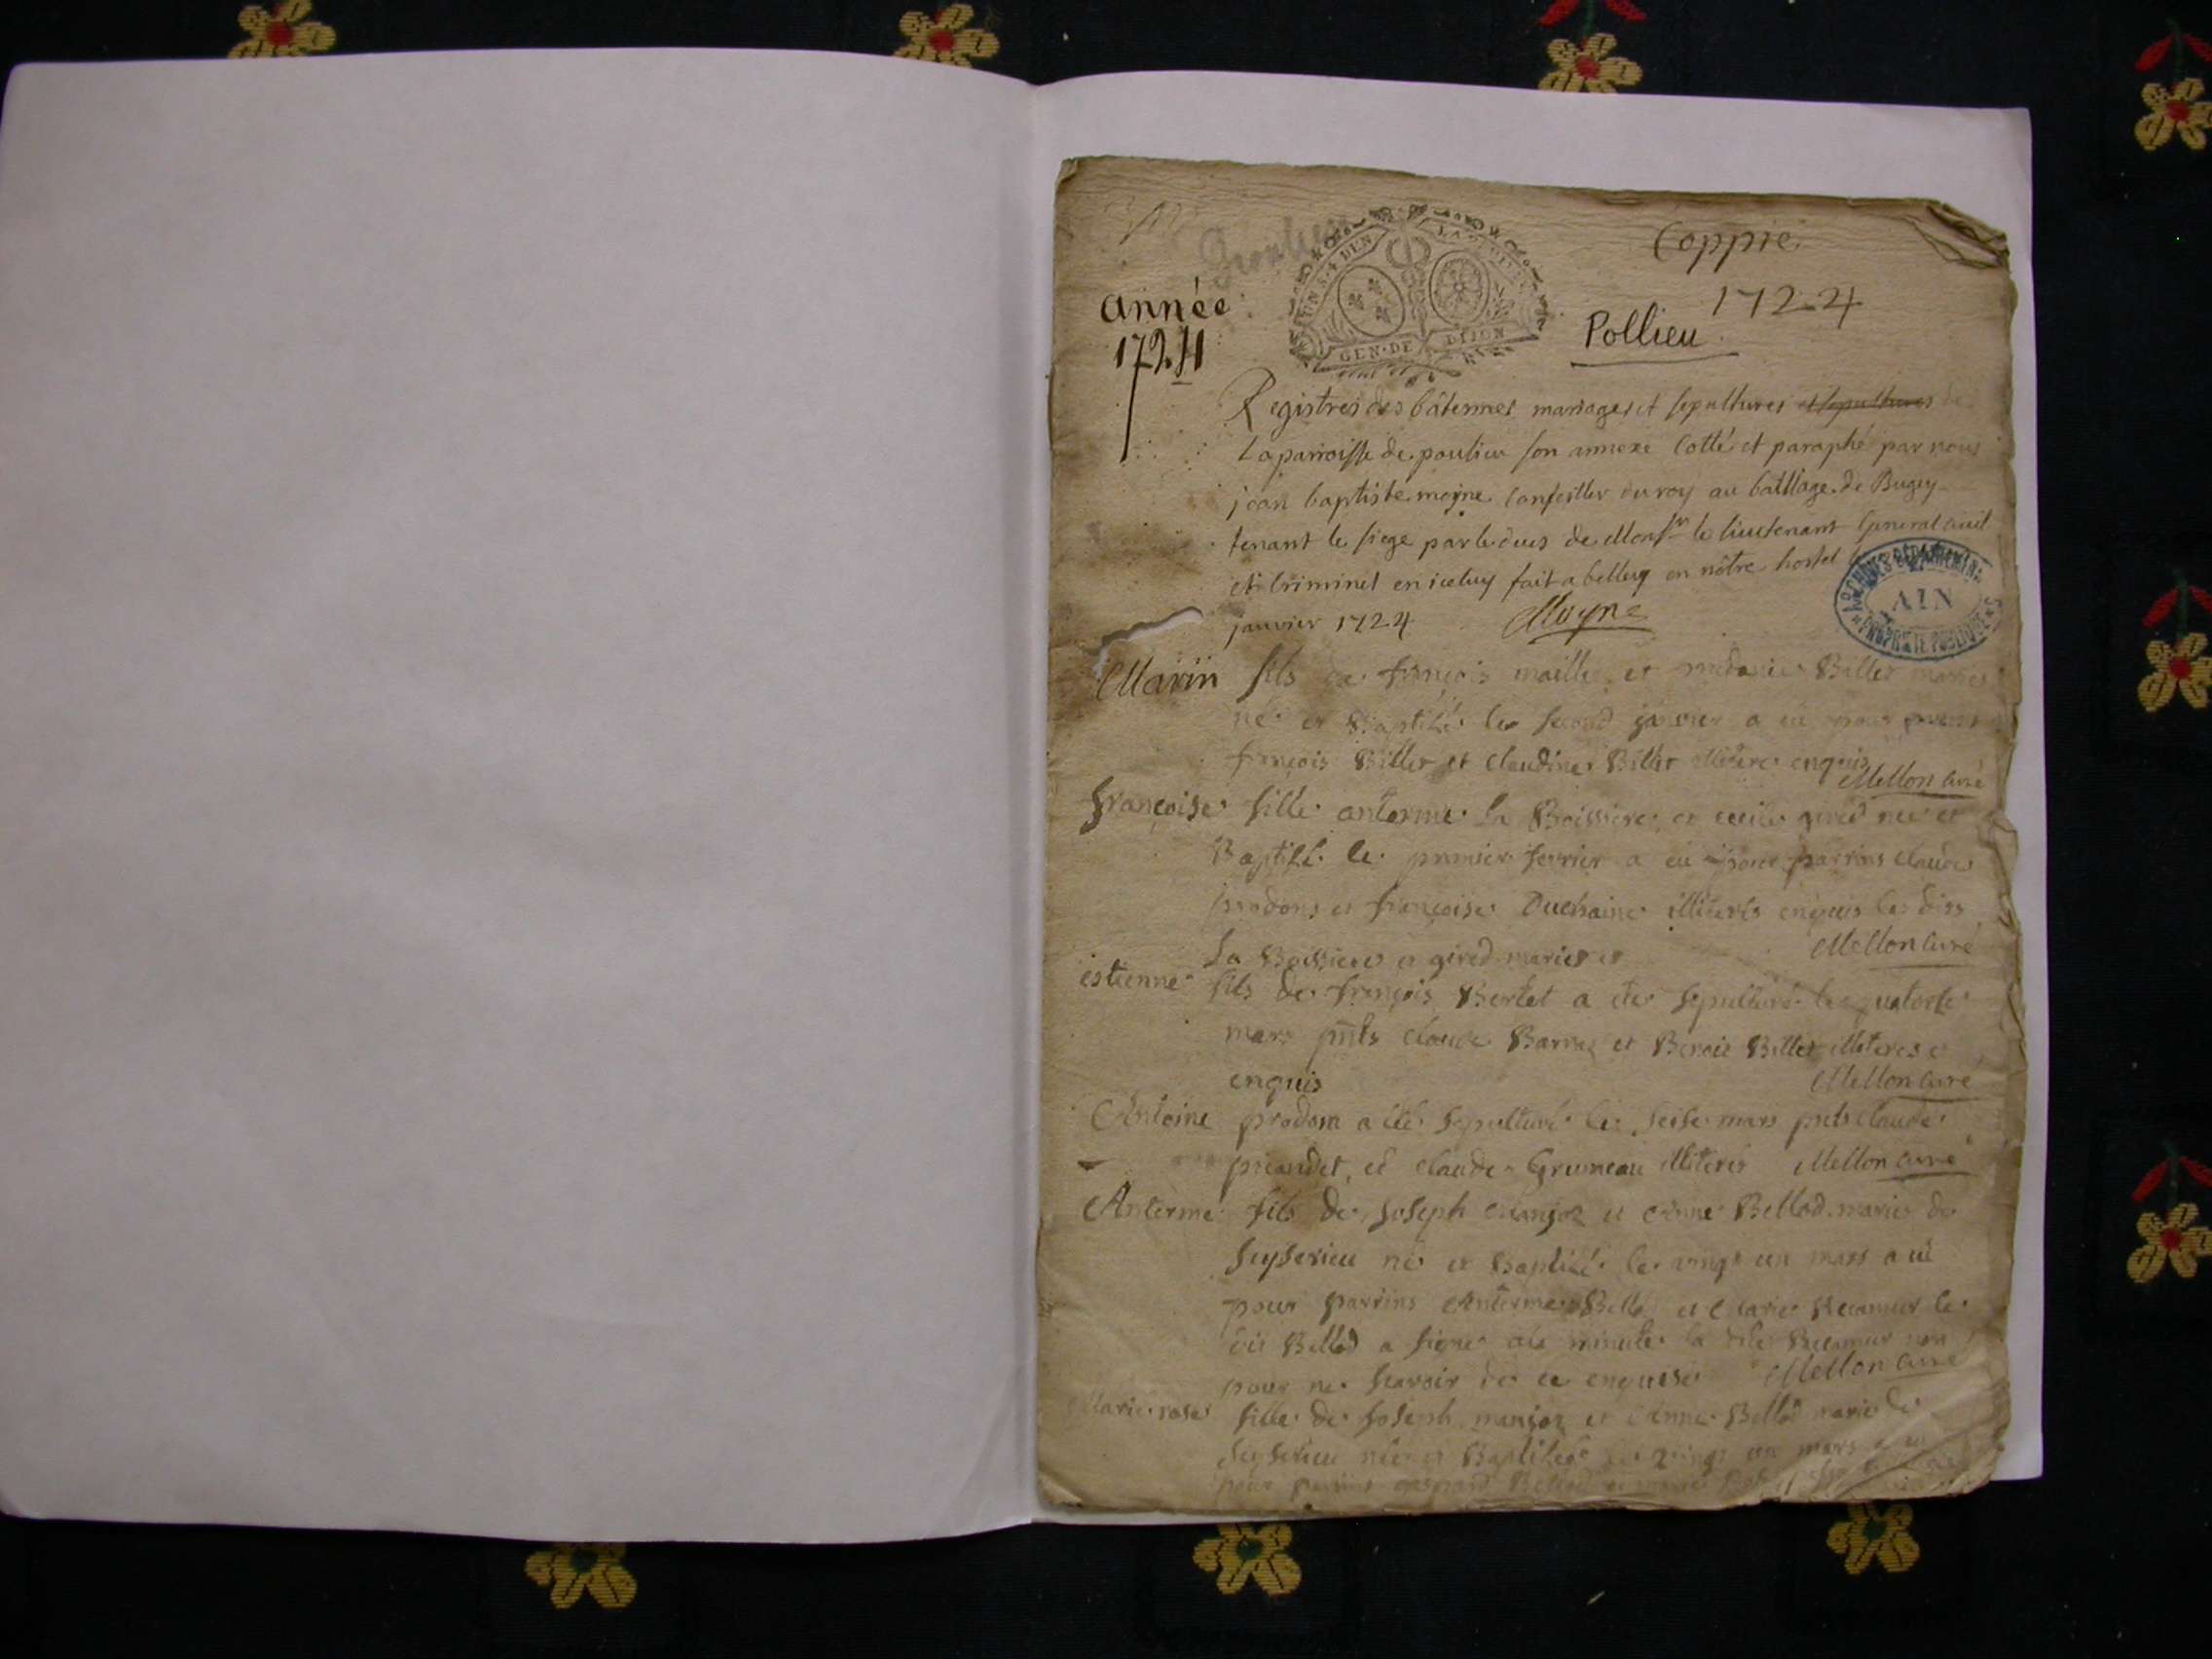 Coppie.
1724
Pollieu.
année
1724
UN S. 4 DEN.
GEN. DE DIJON
Registres des bâtemmes mariages et sepultures et sepultures de
La parroisse de poulieu son annexe Cotté et paraphé par nous
jean baptiste moyne Conseiller du roy au bailliage de Bugey
tenant le siege par le deces de Monsr le lieutenant General civil
et Criminel en iceluy fait a belley en nôtre hostel
janvier 1724 Moyne
ARCHIVES DÉPARTEMENT.
AIN
PROPRIÉTÉ PUBLIQUE
Marin fils de françois maille et Billet mariés
né et Baptisé le second janvier a eu pour parrins
françois Billet et claudine Billet enquis
Mellon curé
françoise fille anterme la Boissiere et cecile gired née et
Baptisé le premier fevrier a eu pour parrins claude
prodons et françoise Duchaine illiterés enquis les dits
La Boissiere et gired mariés Mellon curé
estienne fils de françois Bertet a eté sepulturé le quatorse
mars pnts claude Barnaz et Benoit Billet illiteres
enquis Mellon curé
Antoine prodom a eté sepulturé le seise mars pnts claude
preandet, et claude Grumeau illiterés Mellon curé
Anterme fils de Joseph manjoz et Anne Bellod mariés de
seyserieu né et Baptisé le vingt un mars a eu
pour parrins Anterme Bellod et Marie Recamier le
dit Bellod a signé a la minute la dite Recamier non
pour ne scavoir de ce enquise Mellon curé
Marie rose fille de Joseph manjoz et Anne Bellod mariés de
seyserieu née et Baptisée le vingt un mars a eu
pour parrins gaspard Bellod et